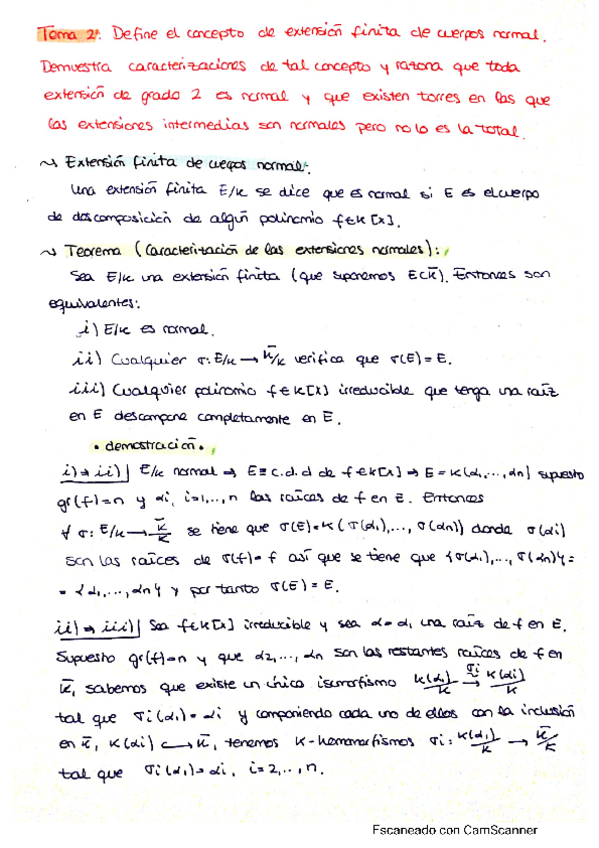 Tema 2: Define el concepto de extensión finita de cuerpos normal.
Demuestra caracterizaciones de tal concepto y razona que toda
extensión de grado 2 es normal y que existen torres en las que
las extensiones intermedias son normales pero no lo es la total.
~> Extensión finita de cuerpos normal:
Una extensión finita E/K se dice que es normal si E es el cuerpo
de descomposición de algún polinomio f∈K[x].
~> Teorema (Caracterización de las extensiones normales):
Sea E/K una extensión finita (que suponemos E⊂K̄). Entonces son
equivalentes:
i) E/K es normal.
ii) Cualquier σ: E/K → K̄/K verifica que σ(E)=E.
iii) Cualquier polinomio f∈K[x] irreducible que tenga una raíz
en E descompone completamente en E.
• demostración •
i)⇒ii)| E/K normal ⇒ E≡c.d.d de f∈K[x] ⇒ E=K(α1,...,αn) supuesto
gr(f)=n y αi, i=1,..,n las raíces de f en E. Entonces
∀ σ: E/K → K̄/K se tiene que σ(E)=K(σ(α1),...,σ(αn)) donde σ(αi)
son las raíces de σ(f)=f así que se tiene que {σ(α1),...,σ(αn)}=
={α1,...,αn} y por tanto σ(E)=E.
ii)⇒iii)| Sea f∈K[x] irreducible y sea α=α1 una raíz de f en E.
Supuesto gr(f)=n y que α2,...,αn son las restantes raíces de f en
K̄, sabemos que existe un único isomorfismo K(α1)/K →σi K(αi)/K
tal que σi(α1)=αi y componiendo cada uno de ellos con la inclusión
en K̄, K(αi) ↪ K̄, tenemos K-homomorfismos σi: K(α1)/K → K̄/K
tal que σi(α1)=αi, i=2,..,n.
Escaneado con CamScanner